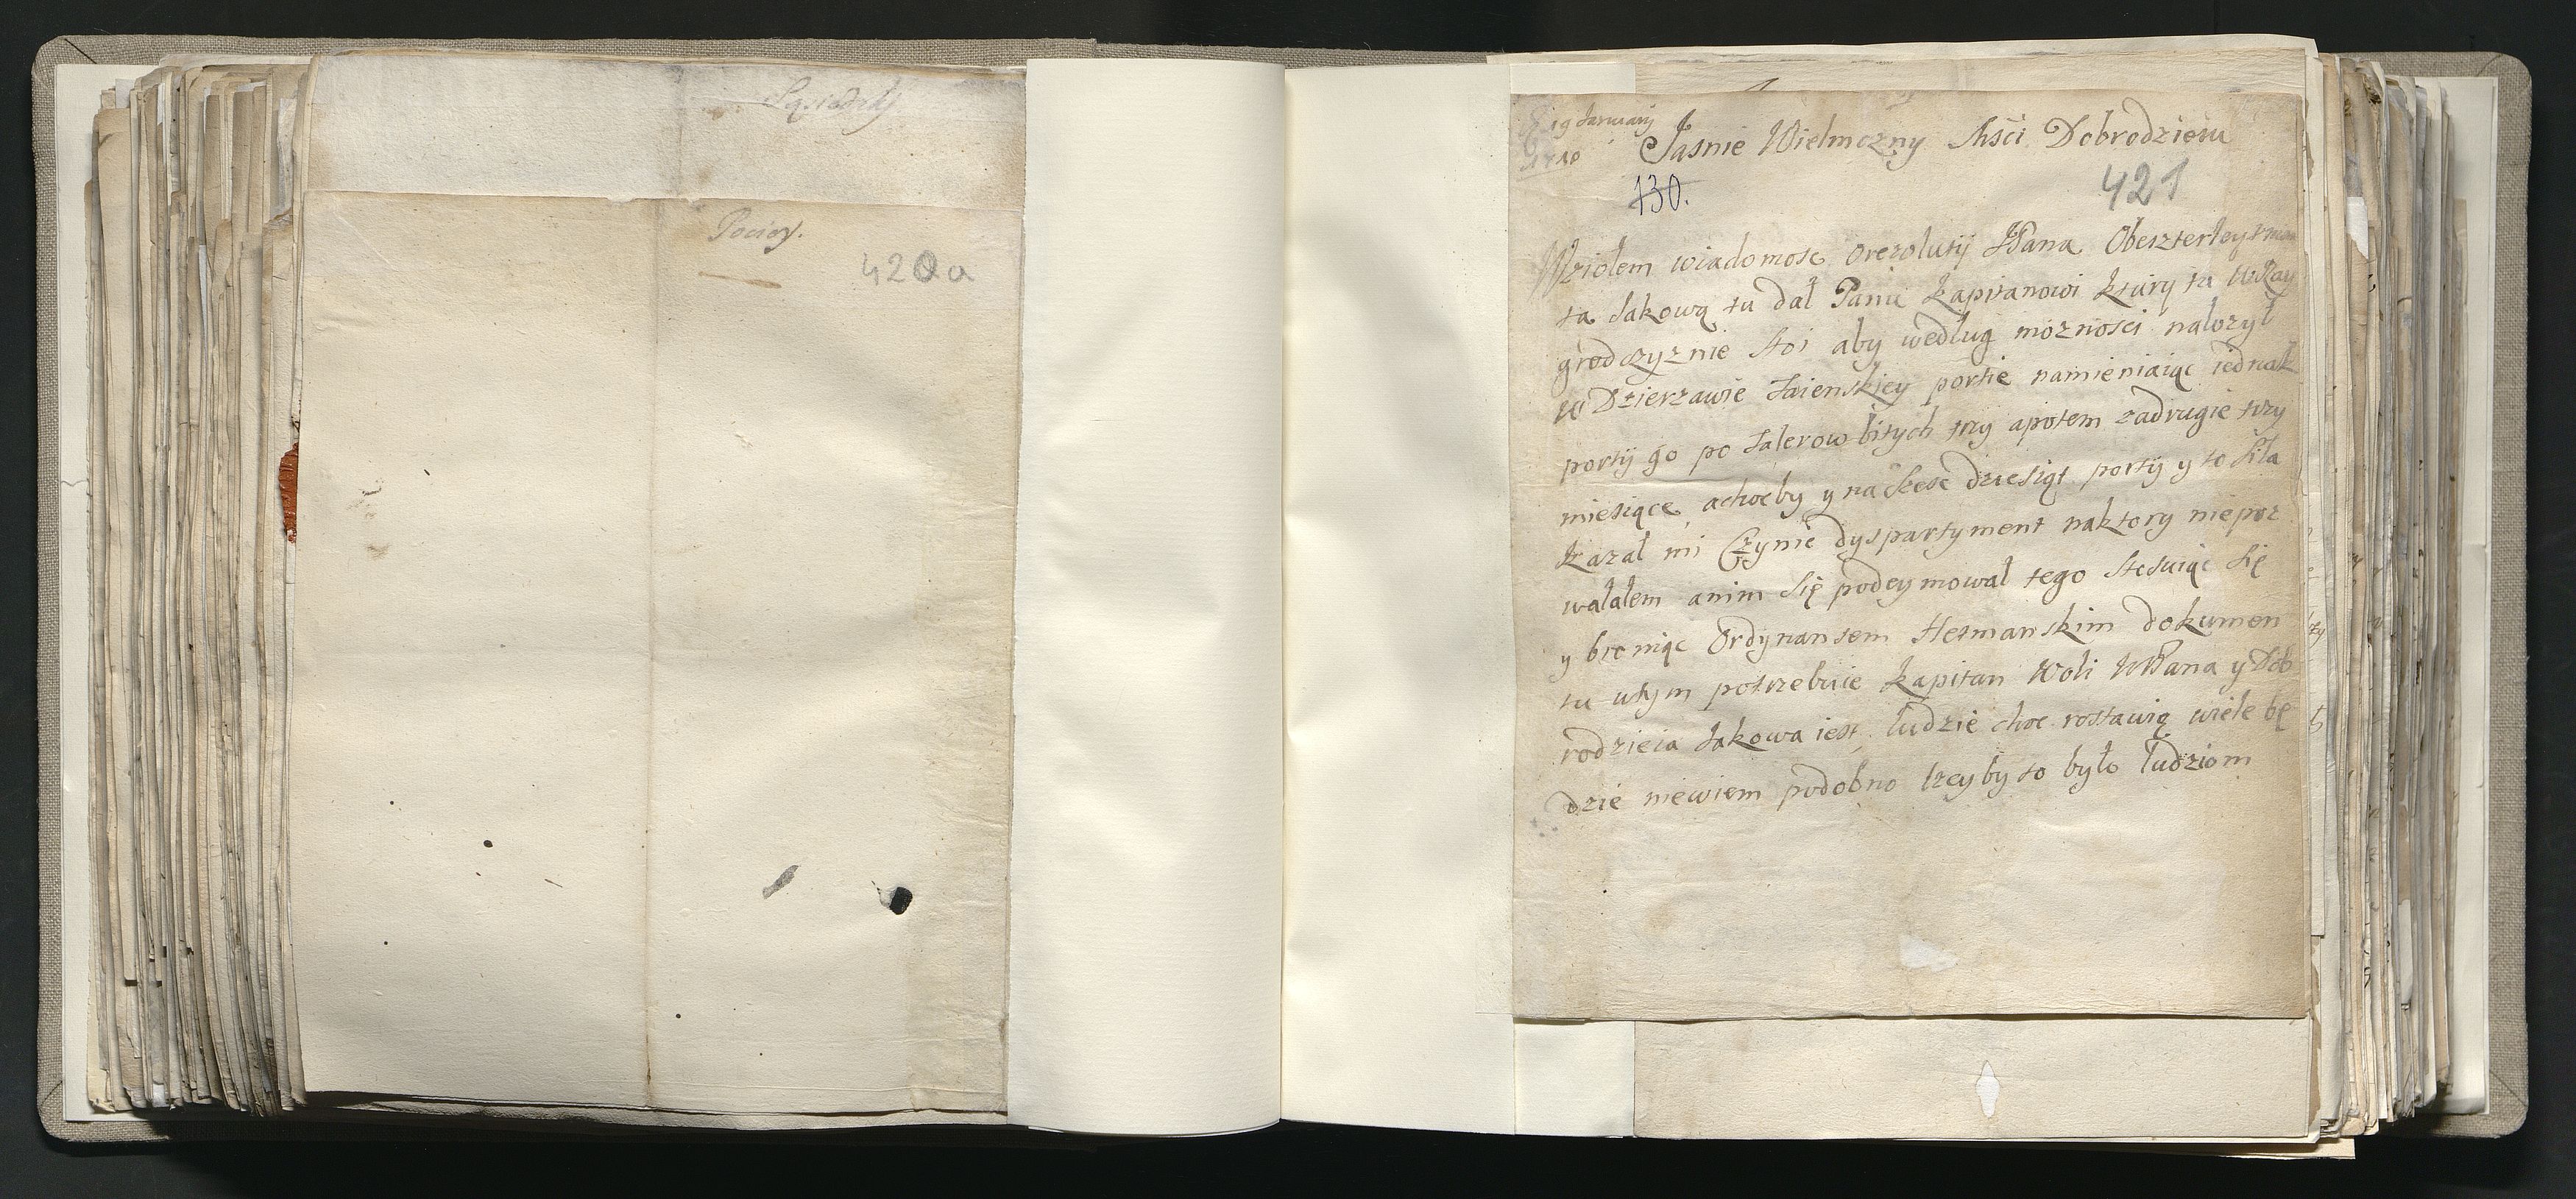 Sąsiedzkj
Pociey.
420a
19 January
1710
Jasnie Wielmozny Mści Dobrodzieiu
130.
421
Wziołem wiadomosc orezolutij JPana Obeszterleytman
ta Jakową tu dał Panu Kapitanowi ktury tu
grodczyznie stoi aby według moznosci nalozył
w Dzierzawie portie namieniaiąc iednak
portij go po talerow bitych trzy apotem zadrugie trzy
miesiące achocby y na szesc dziesiąt portij y to siła
kazał mi czynic dyspartyment naktory niepoz
walałem anim się podeymował tego stosuiąc się
y broniąc Ordynansem Hetmanskim dokumen
tu wtym potrzebuie Kapitan Woli WPana y Dob
rodzieia Jakowa iest ludzie choc rostawią wiele bę
dzie niewiem podobno lzey by to było ludziom